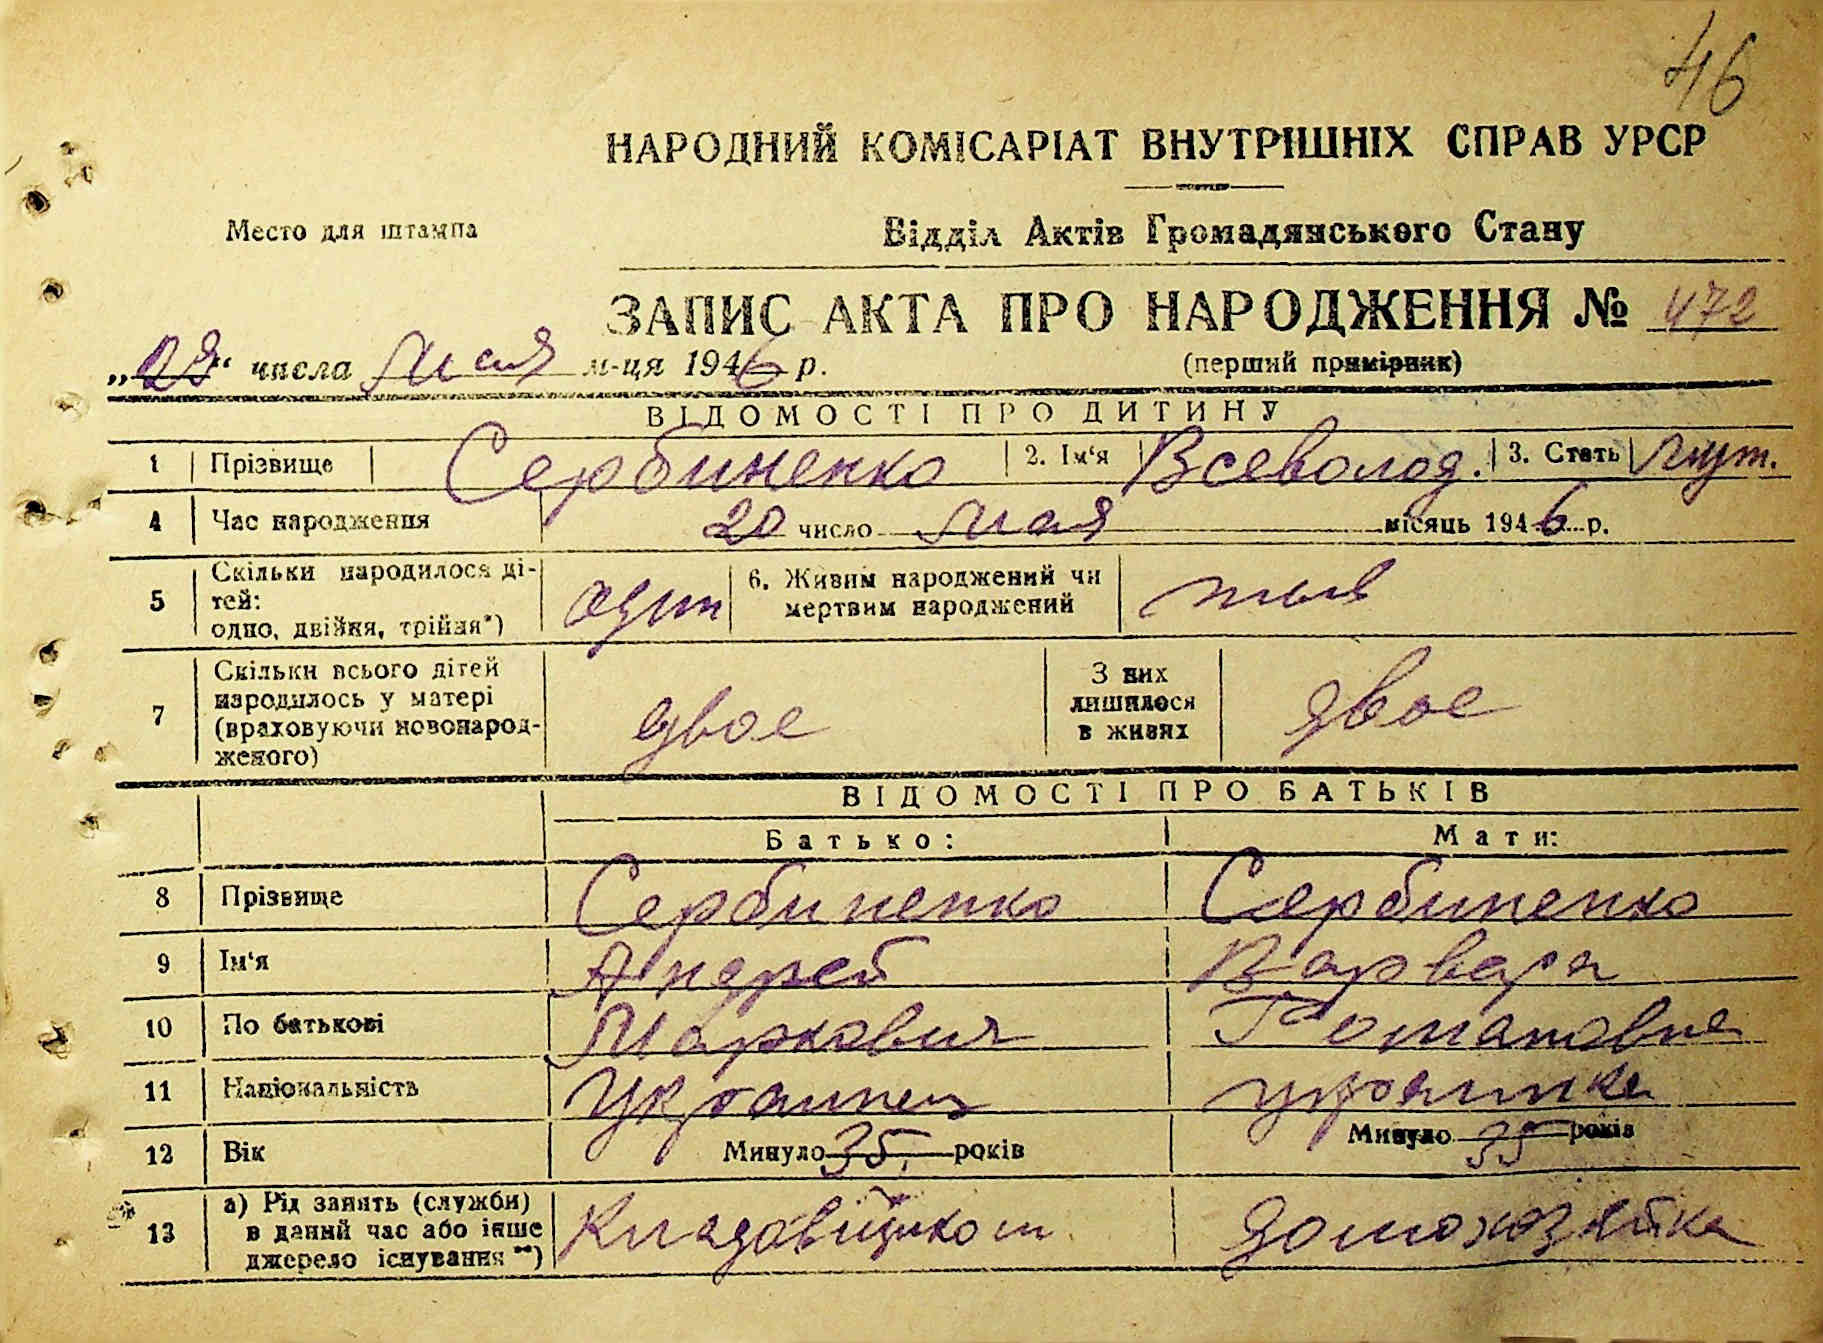 46
НАРОДНИЙ КОМІСАРІАТ ВНУТРІШНІХ СПРАВ УРСР
Место для штампа
Відділ Актів Громадянського Стану
ЗАПИС АКТА ПРО НАРОДЖЕННЯ № 472
„28“ числа мая м-ця 1946 р.
(перший примірник)
ВІДОМОСТІ ПРО ДИТИНУ
1 Прізвище Сербиненко 2. Ім‘я Всеволод. 3. Стать муж.
4 Час народження 20 число мая місяць 1946 р.
5 Скільки народилося ді-
тей:
одно, двійня, трійня*) один
6. Живим народжений чи
мертвим народжений жив
7 Скільки всього дітей
народилось у матері
(враховуючи новонарод-
женого) двое
З них
лишилося
в живих двое
ВІДОМОСТІ ПРО БАТЬКІВ
Батько: Мати:
8 Прізвище Сербиненко Сербиненко
9 Ім‘я Андрей Варвара
10 По батькові Маркович Романовна
11 Національність Украинец украинка
12 Вік Минуло 35. років Минуло 35 років
13 а) Рід занять (служби)
в даний час або інше
джерело існування **) Кладовщиком домохозяйка